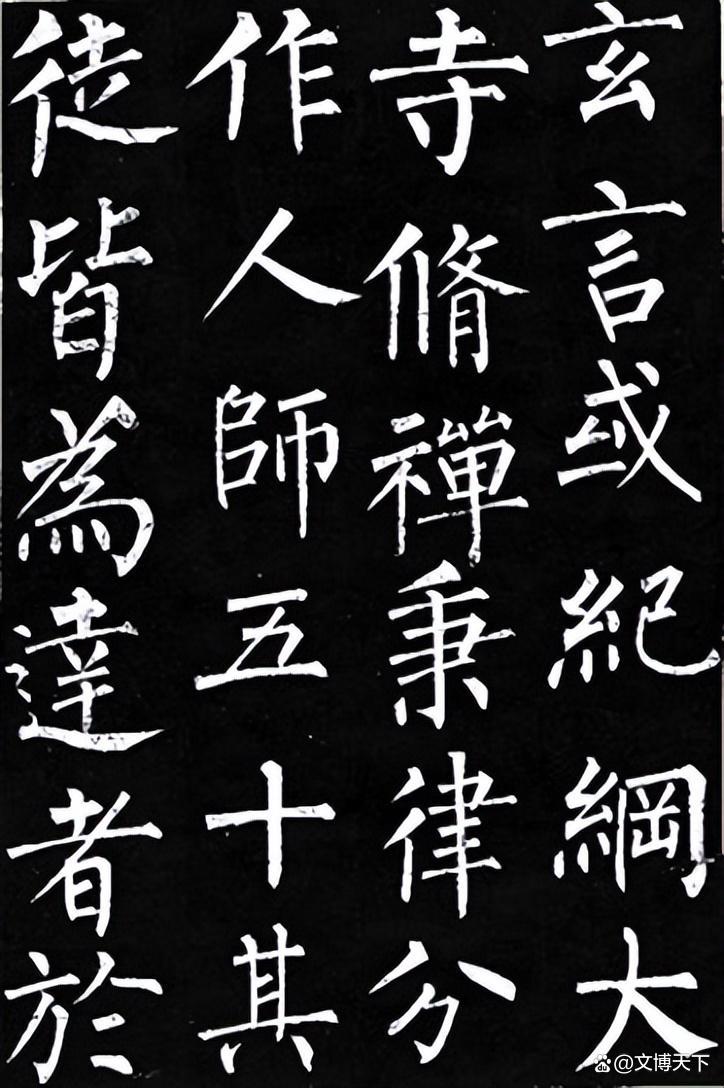 玄言或紀綱大
寺脩禪秉律分
作人師五十其
徒皆為達者於
@文博天下